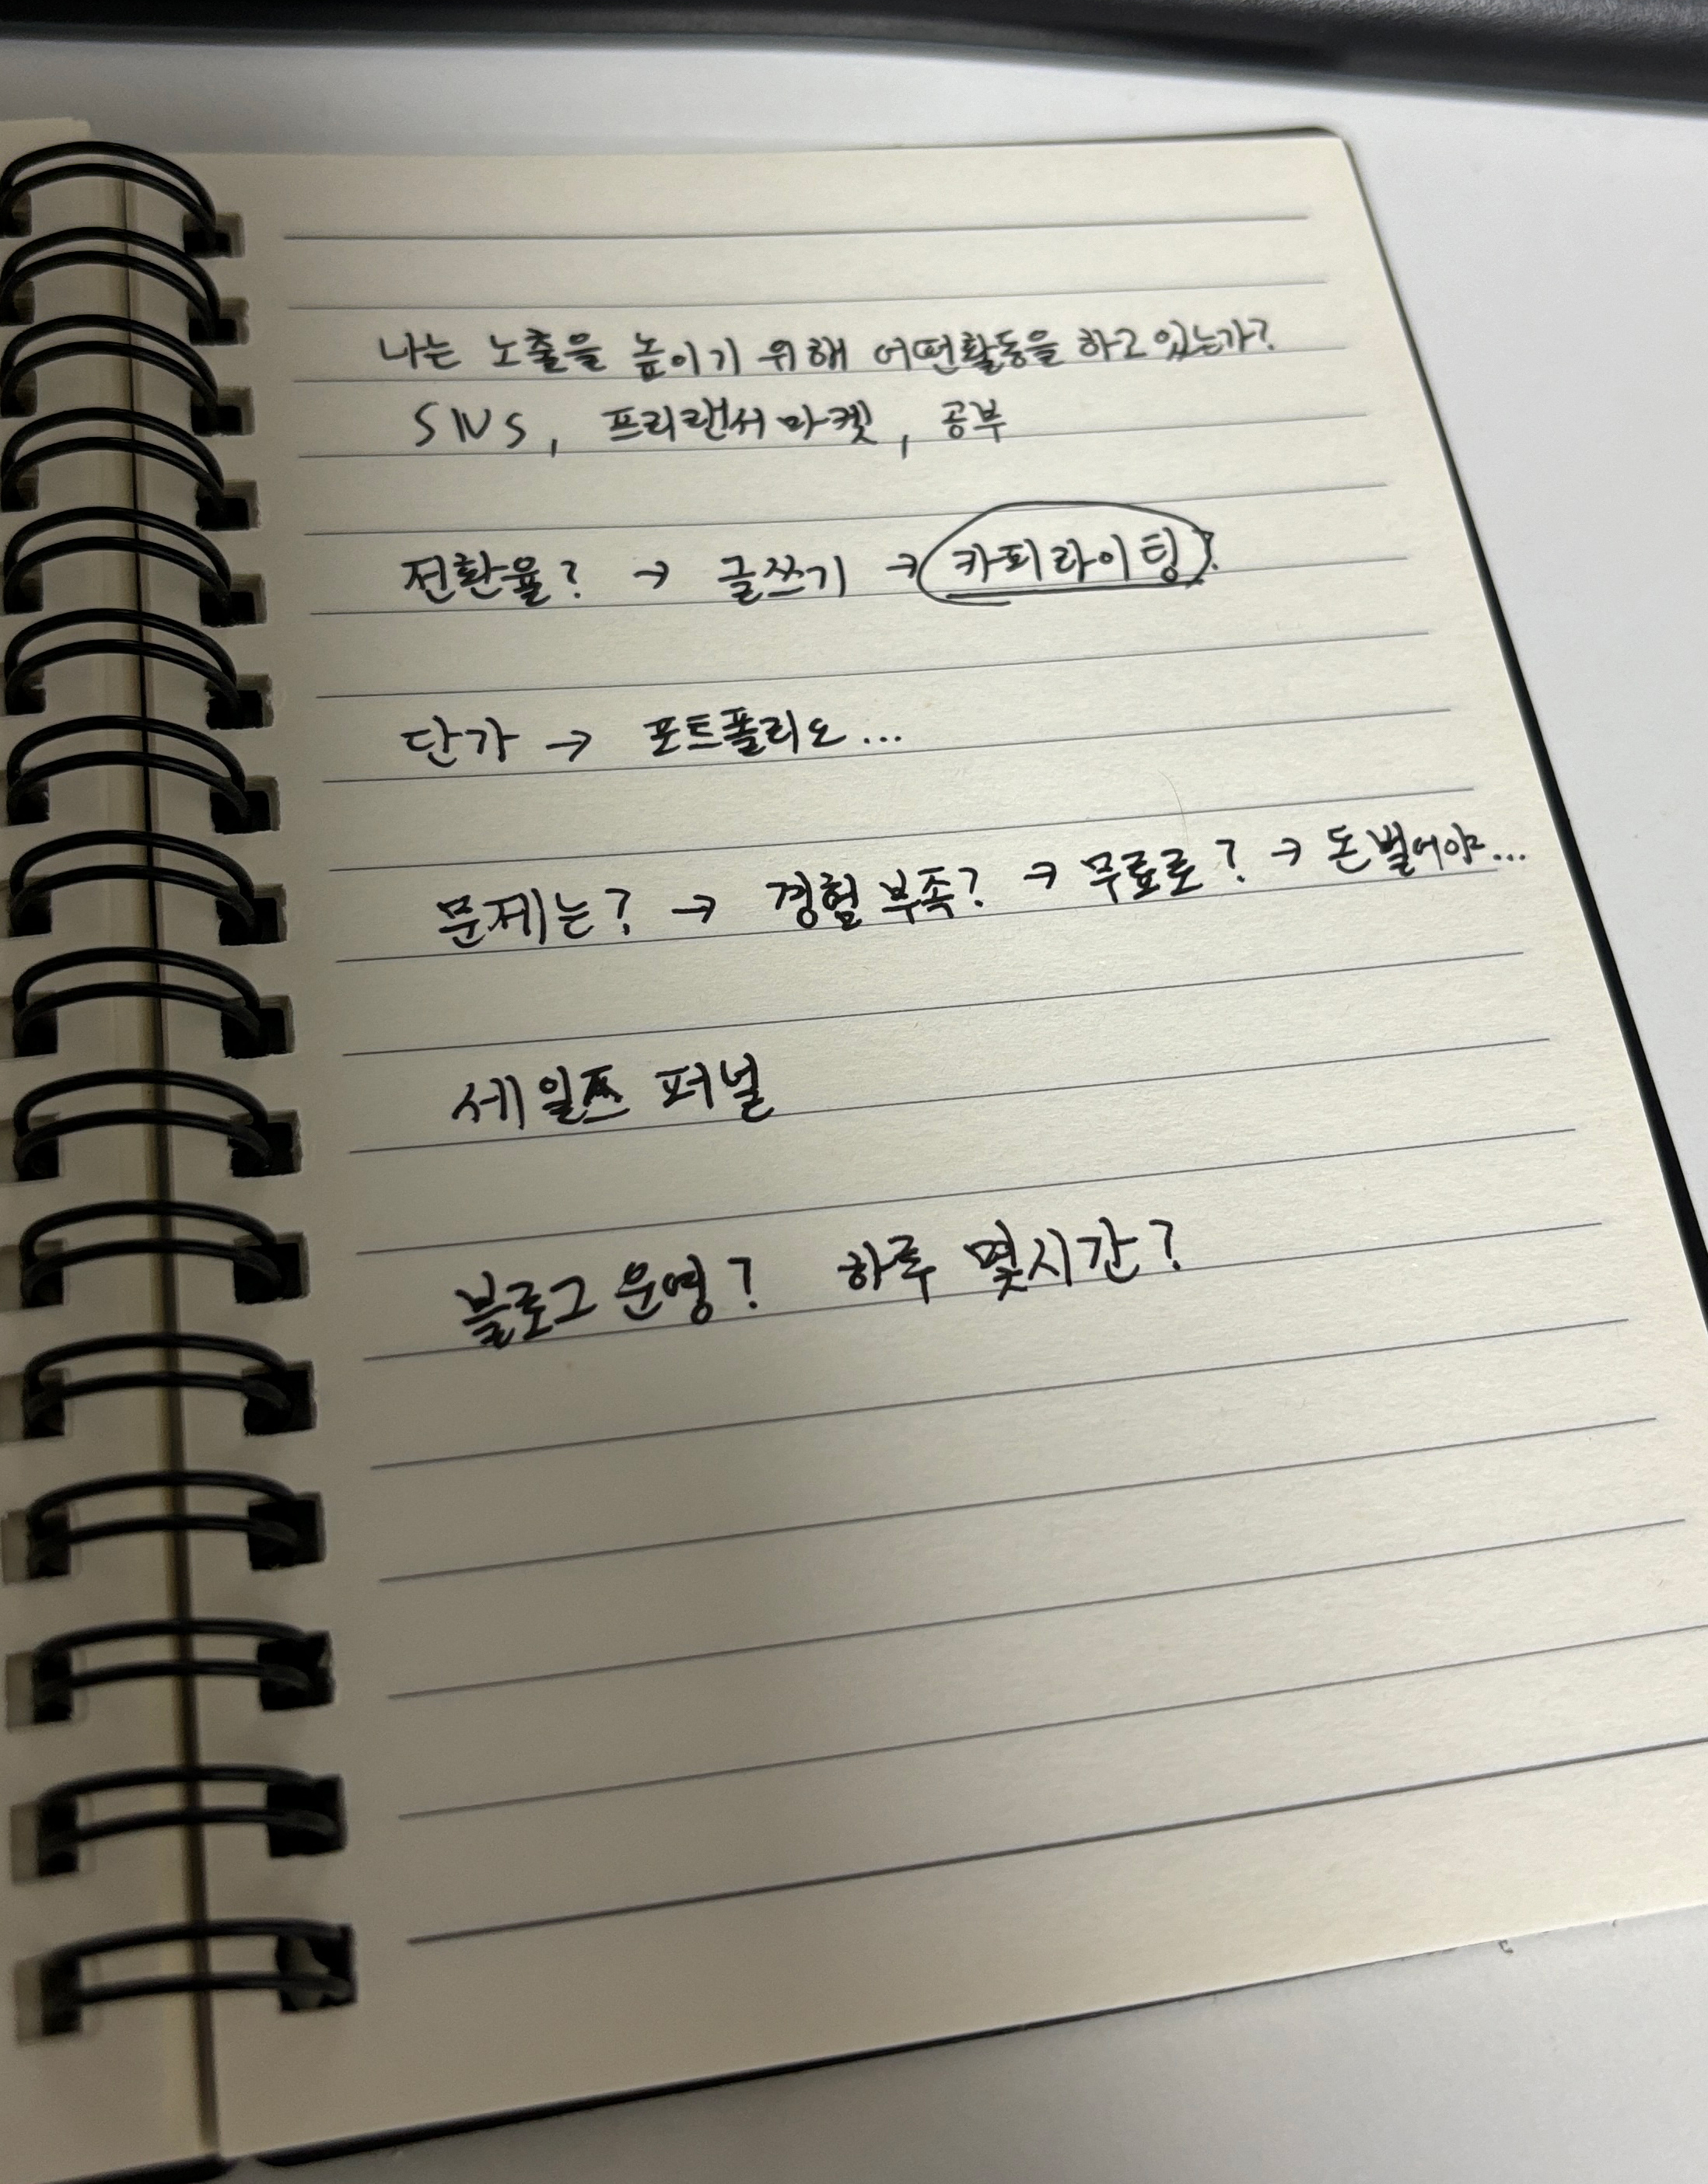 나는 노출을 높이기 위해 어떤활동을 하고 있는가?
SNS, 프리랜서 마켓, 공부
전환율? → 글쓰기 → 카피라이팅?
단가 → 포트폴리오...
문제는? → 경험 부족? → 무료로? → 돈 벌어야...
세일즈 퍼널
블로그 운영? 하루 몇시간?